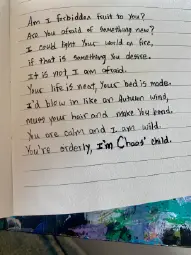 Am I forbidden fruit to you?
Are you afraid of something new?
I could light your world on fire,
if that is something you desire.
It is not, I am afraid.
Your life is neat, your bed is made.
I'd blow in like an Autumn wind,
muss your hair and make you bend.
You are calm and I am wild.
You're orderly, I'm Chaos' child.